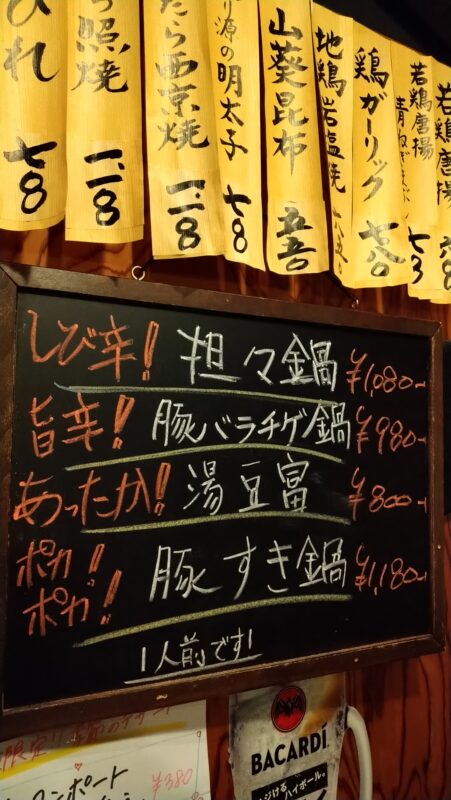 若鶏唐揚
若鶏唐揚
鶏ガーリック
七八〇
地鶏岩塩焼
山葵昆布
五五〇
源の明太子
七八
たら西京焼
一.二八
照焼
一.一八
ひれ
七八
しび辛! 担々鍋 ¥1,080-
旨辛! 豚バラチゲ鍋 ¥980-
あったか! 湯豆富 ¥800-
ポカ!ポカ! 豚すき鍋 ¥1,180-
1人前です!
コンポート
¥380
BACARDÍ
ハイボール。